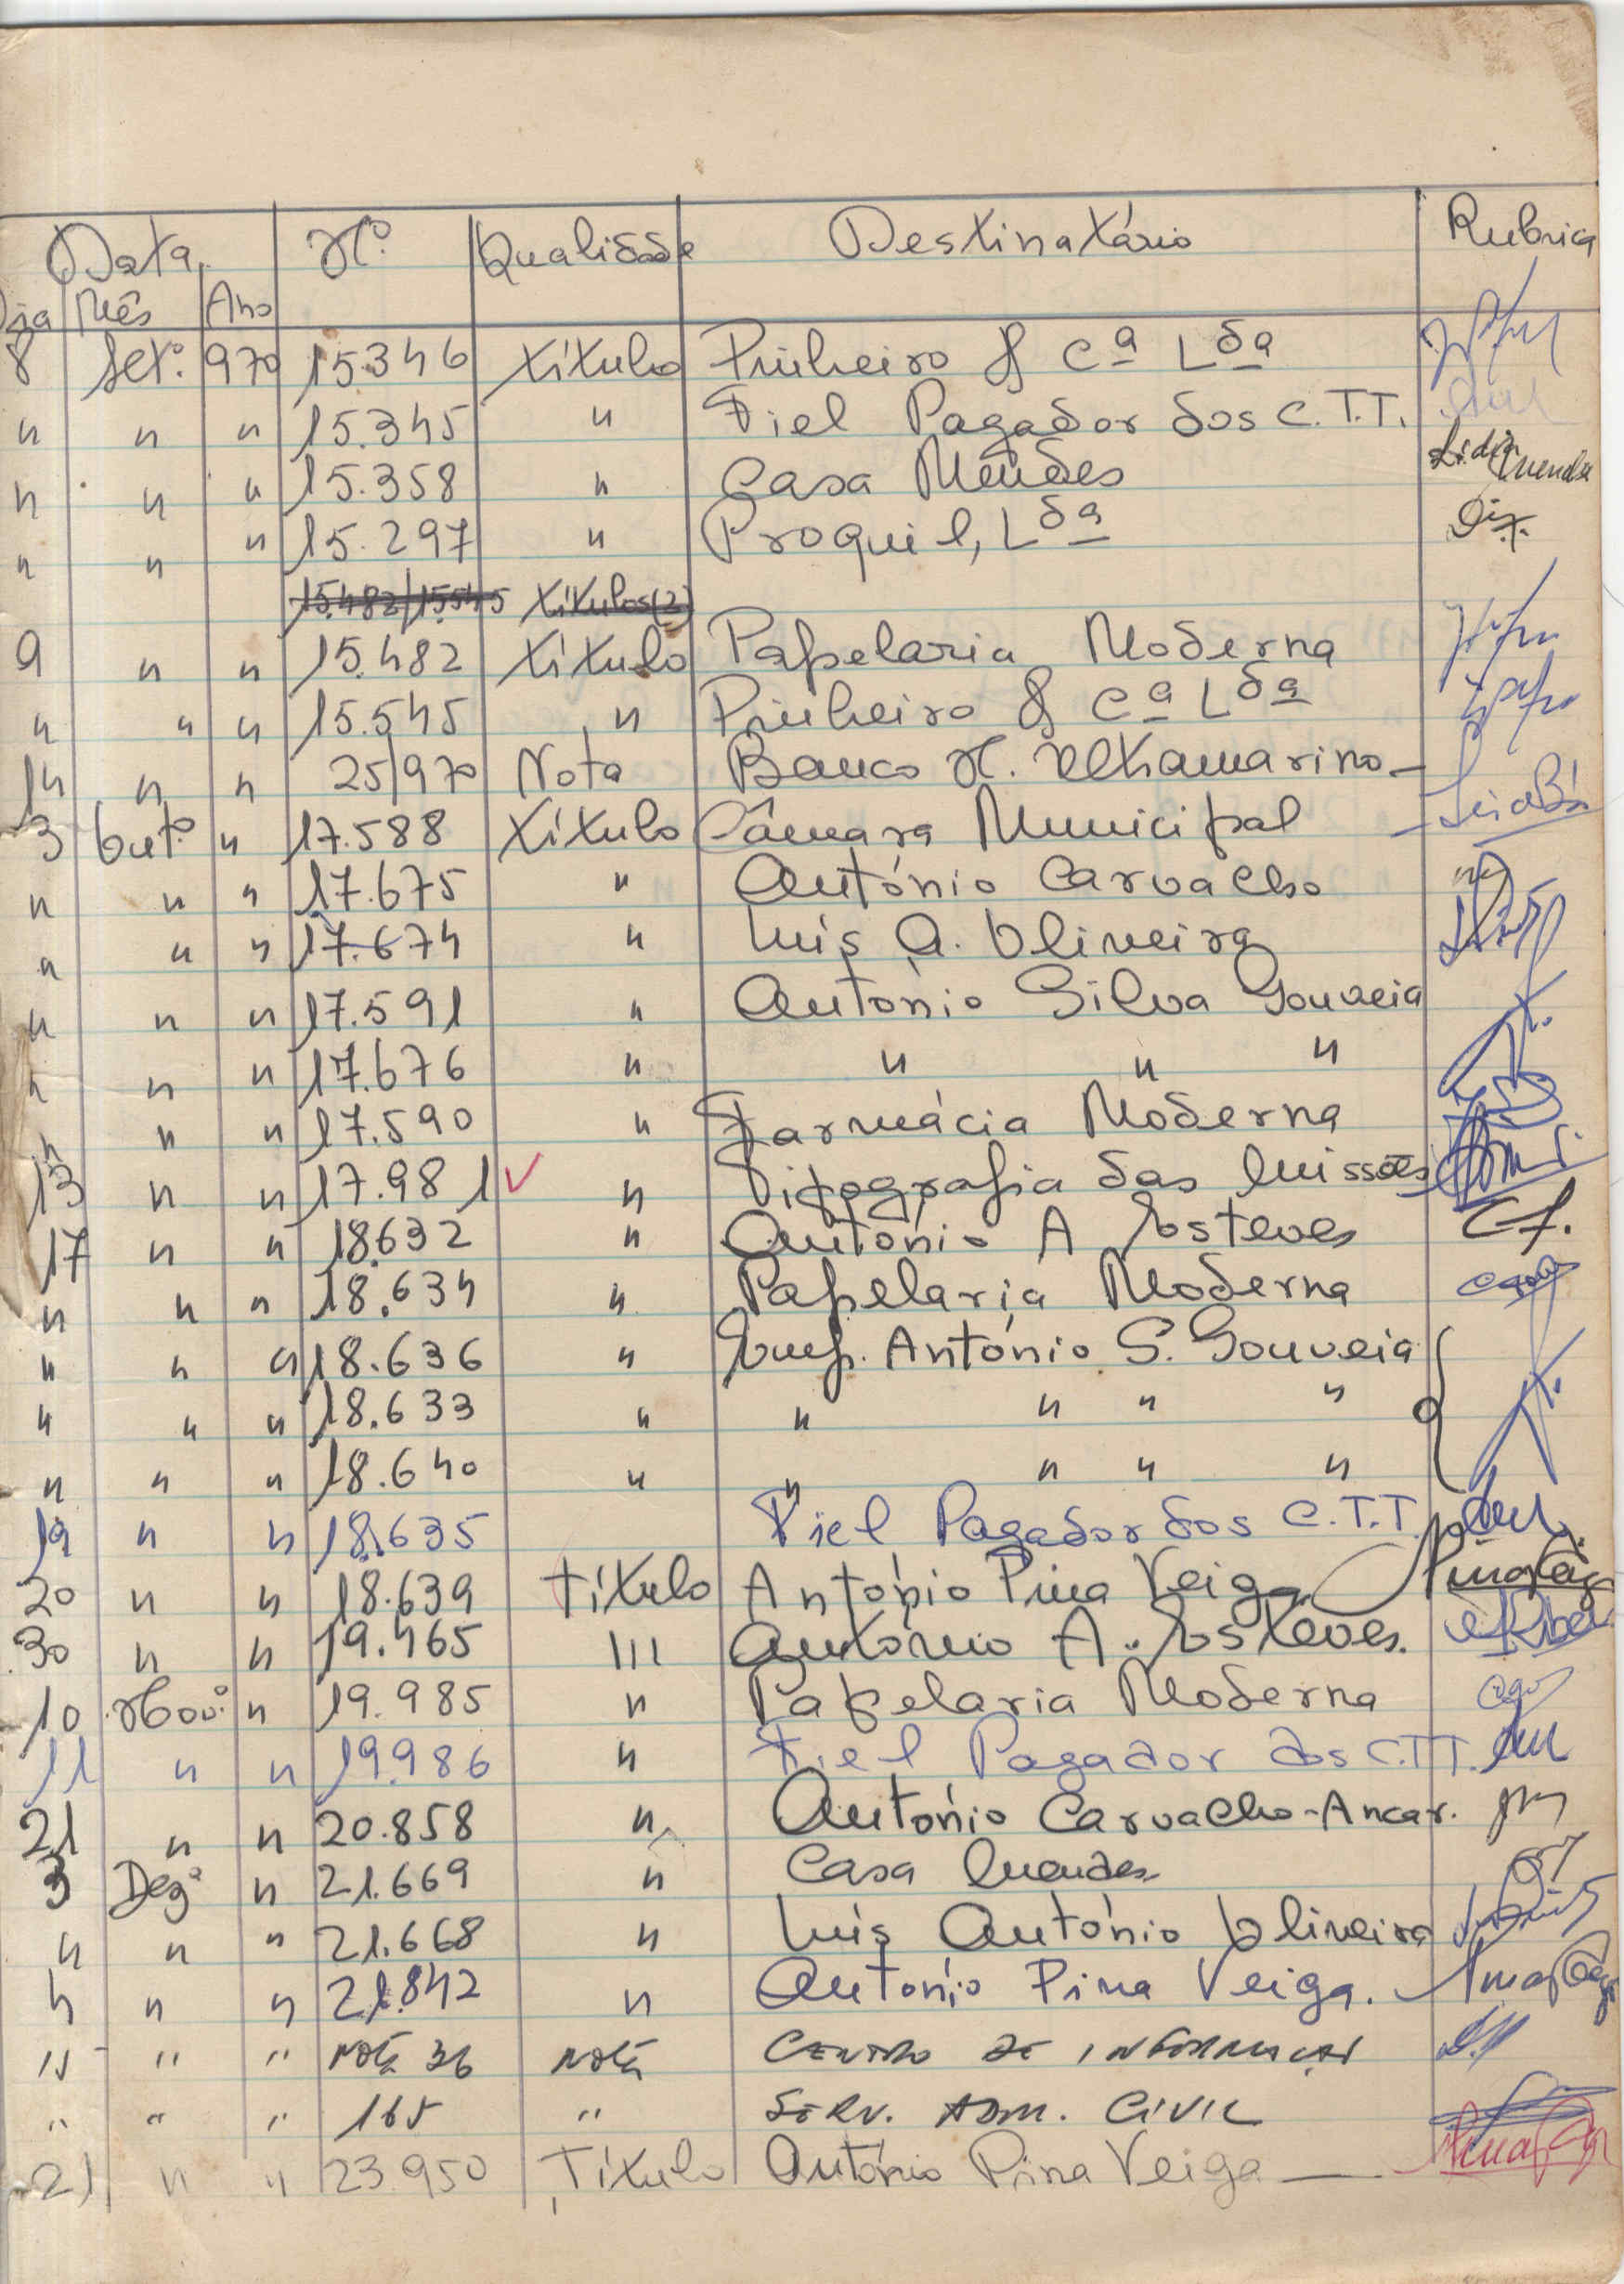 Data Nº Qualidade Destinatário Rubrica
Dia Mês Ano
8 Setº. 970 15.346 Título Pinheiro & Cª Ldª
" " " 15.345 " Fiel Pagador dos C.T.T.
" " " 15.358 " Casa Mendes Lidia Mendes
" " " 15.297 " Proquil, Ldª
15.482/15545 Títulos(2)
9 " " 15.482 Título Papelaria Moderna
" " " 15.545 " Pinheiro & Cª Ldª
14 " " 25/970 Nota Banco N. Ultramarino
3 Outº " 17.588 Título Câmara Municipal
" " " 17.675 " António Carvalho
" " " 17.674 " Luís A. Oliveira
" " " 17.591 " António Silva Gouveia
" " " 17.676 " " " "
" " " 17.590 " Farmácia Moderna
13 " " 17.981 ✓ " Tipografia das Missões
17 " " 18.632 " António A Esteves
" " " 18.634 " Papelaria Moderna
" " " 18.636 " Emp. António S. Gouveia
" " " 18.633 " " " " "
" " " 18.640 " " " " "
19 " " 18.635 Fiel Pagador dos C.T.T.
20 " " 18.639 Título António Pina Veiga
30 " " 19.465 III António A. Esteves.
10 Novº. " 19.985 " Papelaria Moderna
11 " " 19.986 " Fiel Pagador dos C.TT.
21 " " 20.858 " António Carvalho-Ancar.
3 Dezº " 21.669 " Casa Mendes
" " " 21.668 " Luís António Oliveira
4 " " 21.842 " António Pina Veiga.
15 " " Nota 36 Nota CENTRO DE INFORMAÇÃO
" " " 165 " SERV. ADM. CIVIL
21 " " 23.950 Título António Pina Veiga